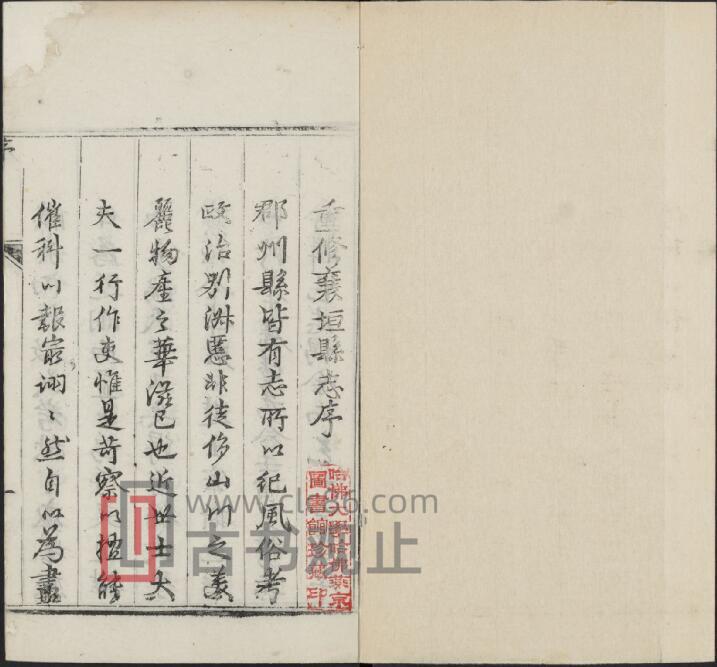 重修襄垣縣志序
郡州縣皆有志所以紀風俗考
政治別淑慝非徒侈山川之美
麗物產之華滋已也近世士大
夫一行作吏惟是苛察以擅能
催科以報最詡〻然自以為盡
哈佛大學哈佛燕京
圖書館珍藏印
www.cls66.com
古书观止